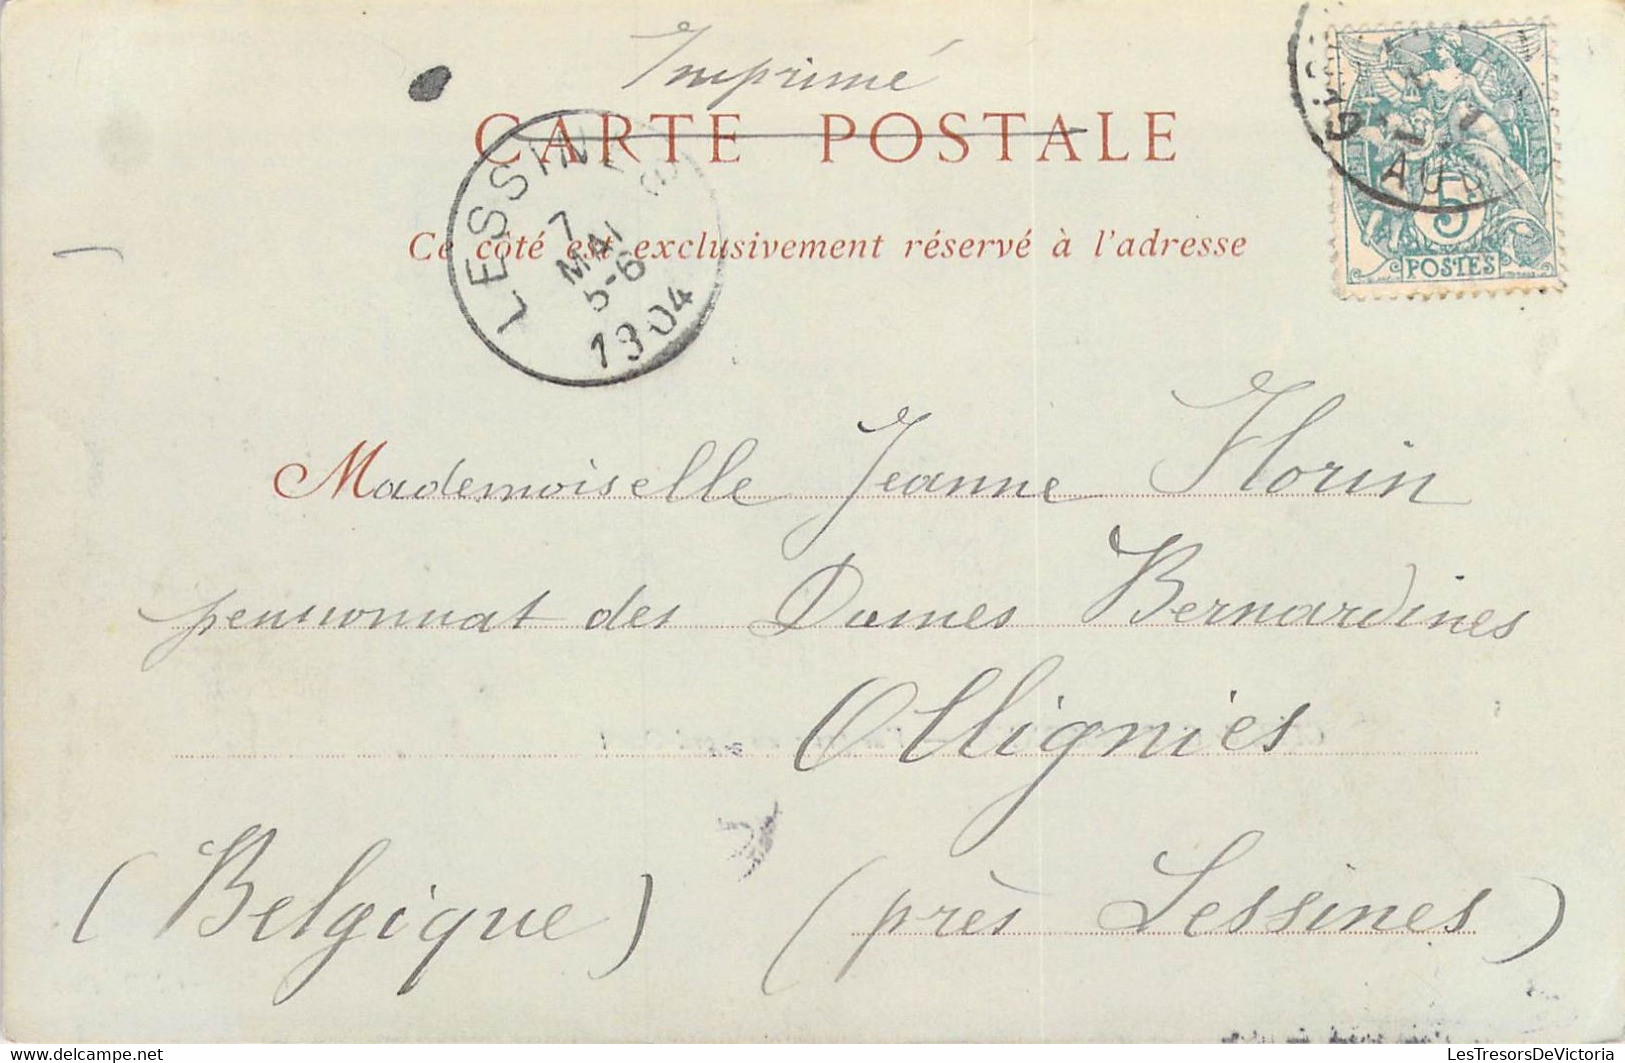 Imprimé
CARTE POSTALE
Ce côté est exclusivement réservé à l'adresse
LESSINES
7
MAI
5-6
1904
5
POSTES
Mademoiselle Jeanne Florin
pensionnat des Dames Bernardines
Ollignies
(Belgique) (près Lessines)
www.LesTresorsDeVictoria.com